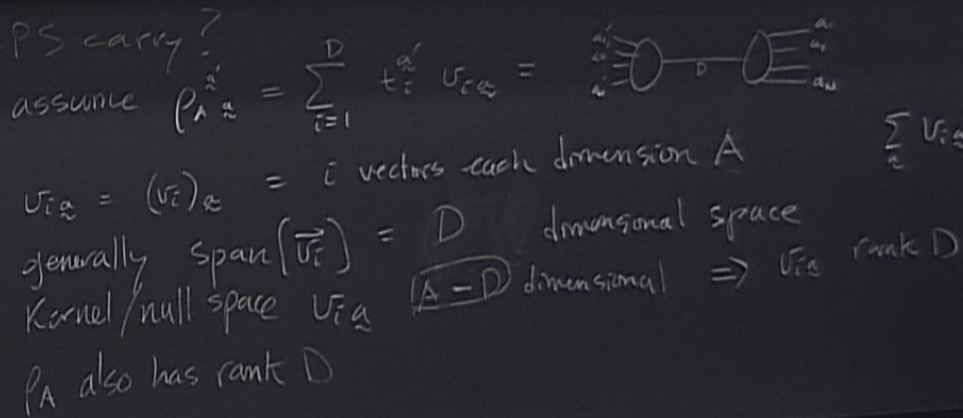 PS carry?
assume ρ_A^{a̰'}_{a̰} = \sum_{i=1}^{D} t_i^{a̰'} v_{i a̰} = D
v_{i a̰} = (v_i)_{a̰} = i vectors each dimension A
\sum_{a̰} v_{i a̰}
generally span(\vec{v_i}) = D dimensional space
Kernel/null space v_{i a̰} A-D dimensional ⇒ v_{i a̰} rank D
ρ_A also has rank D